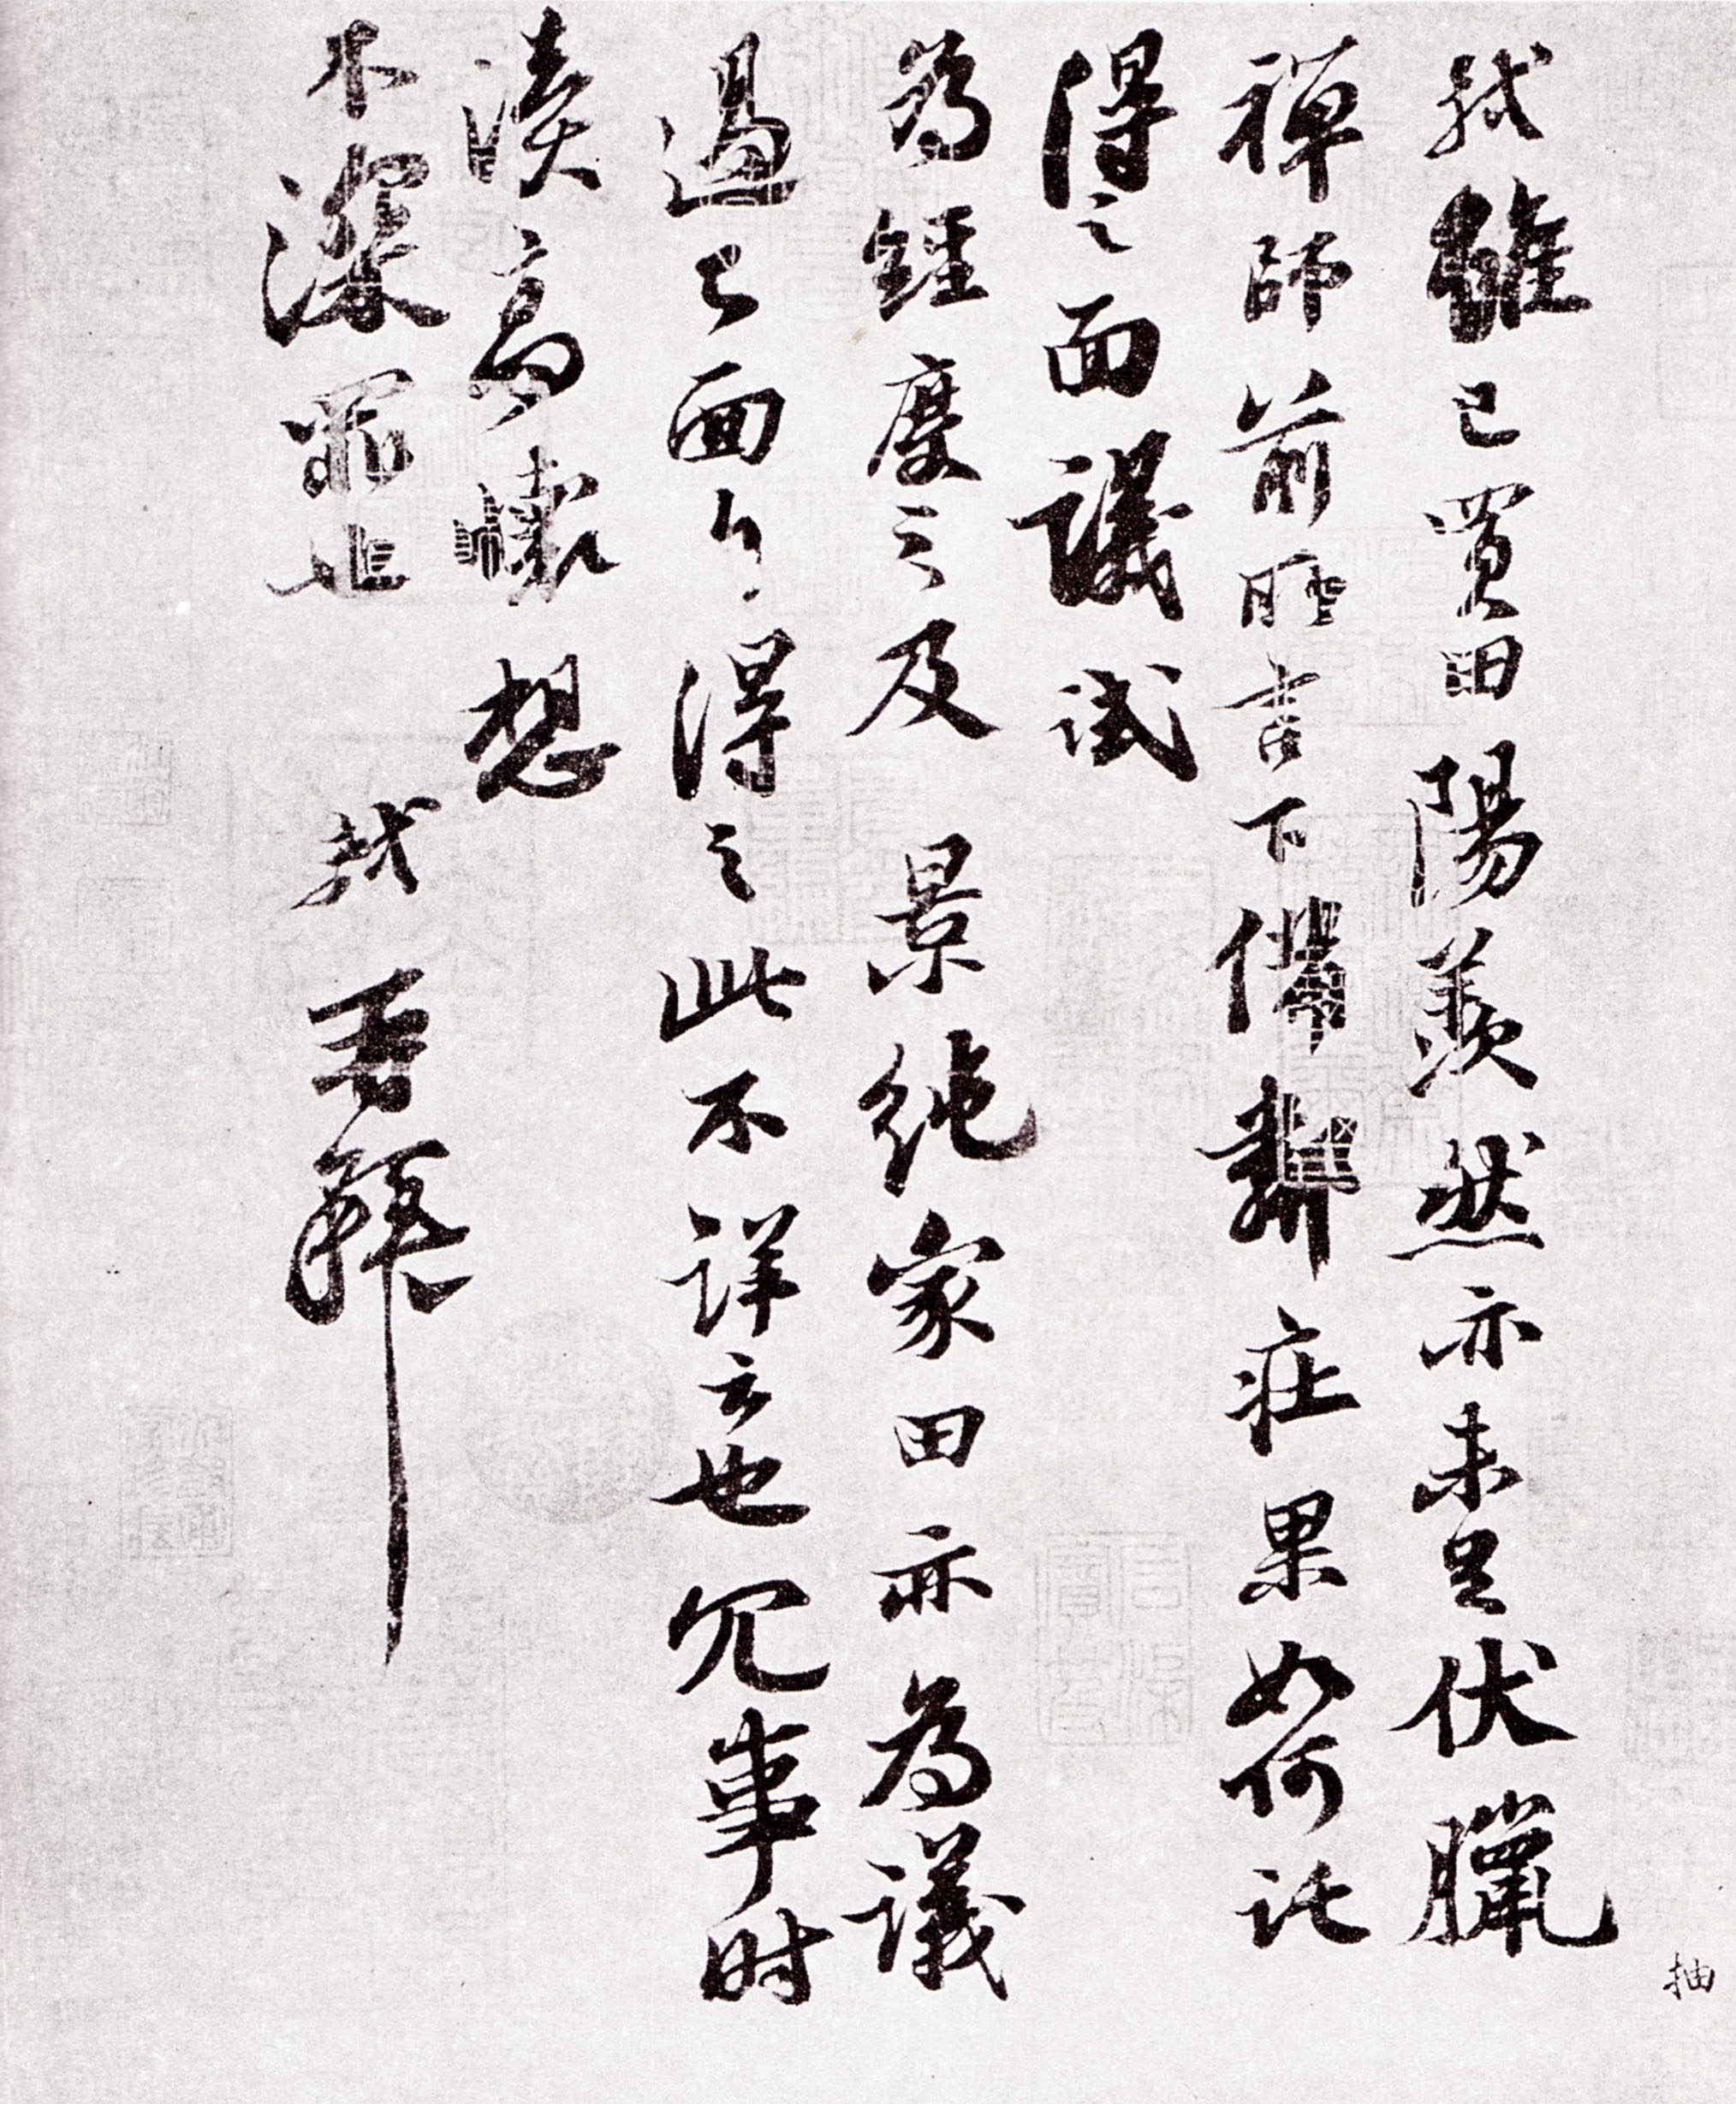 軾雖已買田陽羨然亦未足伏臘
禪師前所言下備鄰莊果如何託
得之面議試
為經度之及 景純家田亦為議
過已面得之此不詳云也冗事時
瀆高懷想
不深罪也 軾再拜
抽